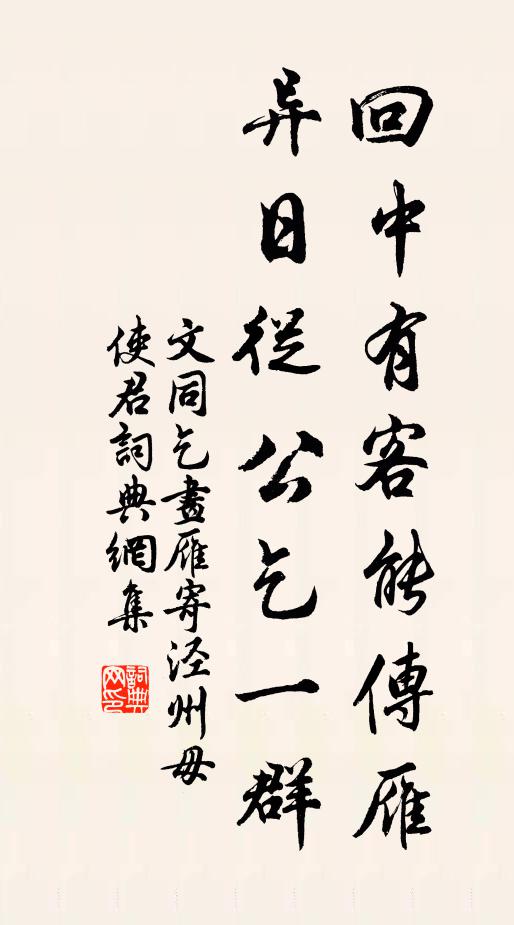 回中有客能傳雁
异日從公乞一群
文同乞畫雁寄涇州毋
使君詞典網集
詞典网印